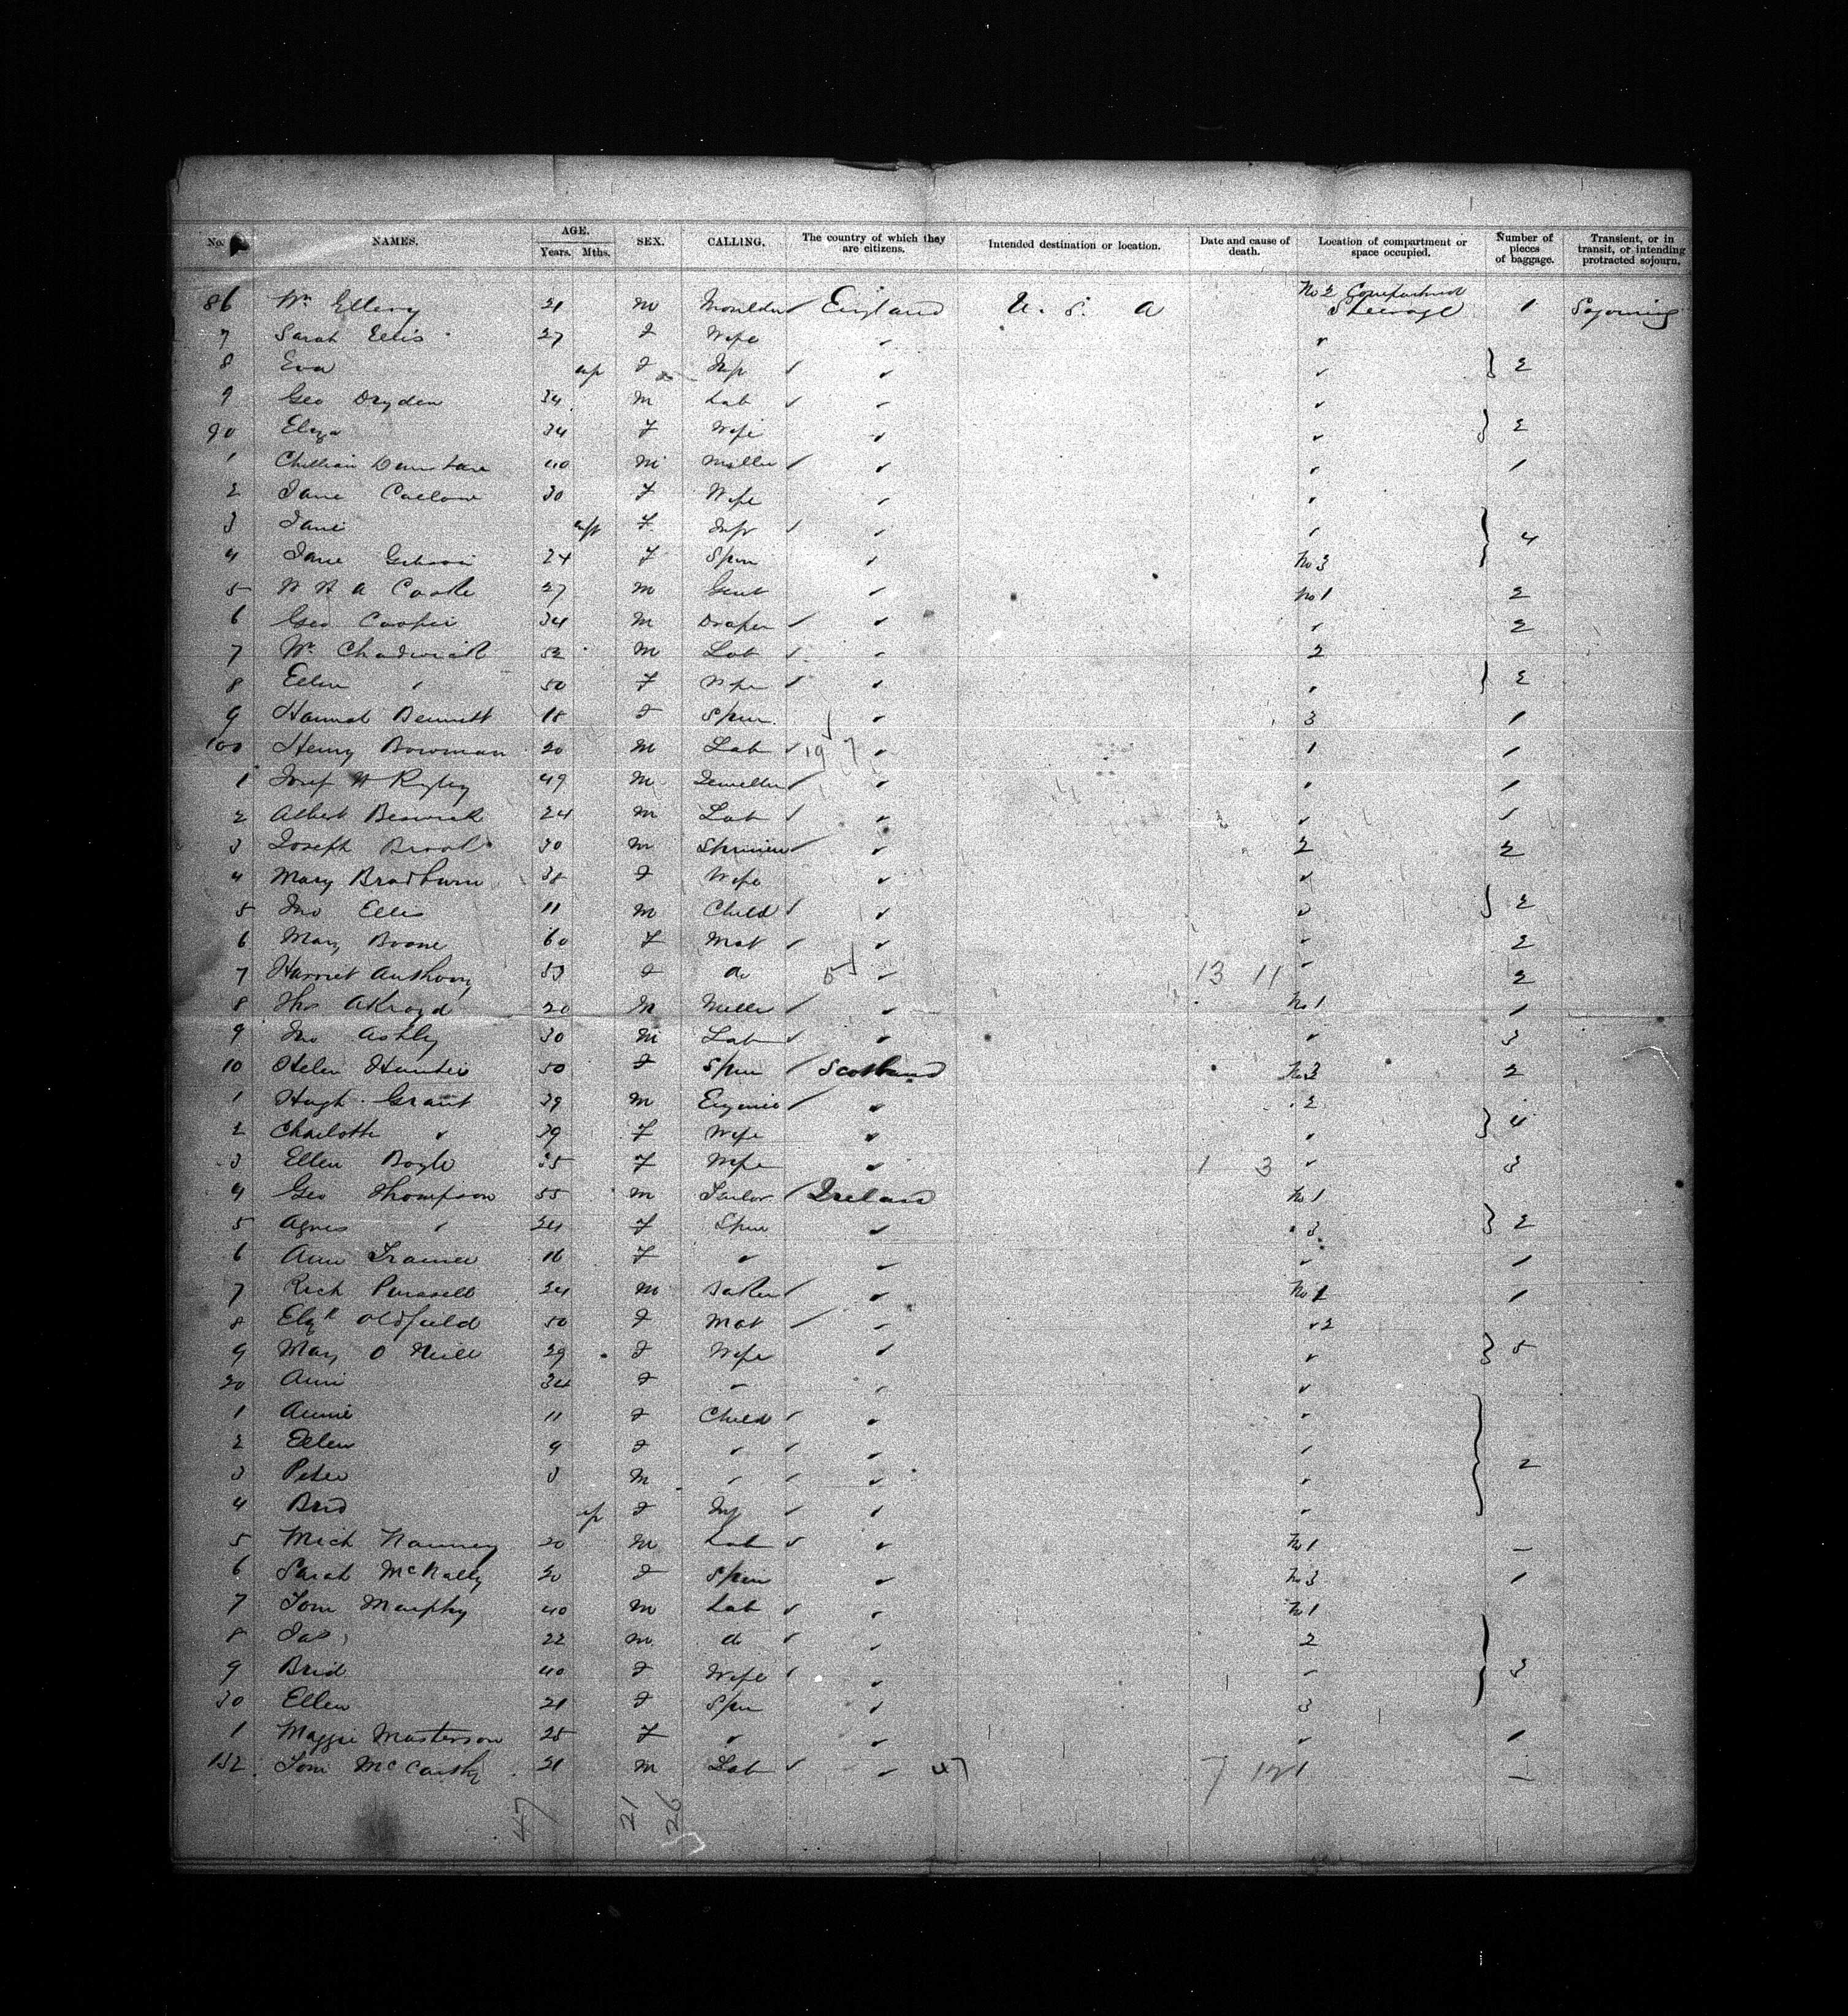 No. NAMES. AGE. Years. Mths. SEX. CALLING. The country of which they are citizens. Intended destination or location. Date and cause of death. Location of compartment or space occupied. Number of pieces of baggage. Transient, or in transit, or intending protracted sojourn.
86 Wm Ellery 21 M Moulder England U. S. A No 2 Compartment Steerage 1 Sojourning
7 Sarah Ellis 27 F Wife
8 Eva inf F Inf 2
9 Geo Dryden 34 M Lab
90 Eliza 34 F Wife 2
1 40 M 1
2 Jane 30 F Wife
3 Jane inf F Inf 4
4 Jane Gibson 24 F Spin No 3
5 A Cooke 27 M Gent No 1 2
6 Geo Cooper 34 M Draper 2
7 Wm Chadwick 52 M Lab 2
8 Ellen " 50 F Wife 2
9 Hannah Bennett 18 F Spin 3 1
100 Henry Bowman 20 M Lab 19 7 1 1
1 49 M Jeweller 1
2 Albert Beswick 24 M Lab 1
3 Joseph Brook 30 M 2 2
4 Mary Bradburn 38 F Wife
5 Jno Ellis 11 M Child 2
6 Mary Boone 60 F Mat 2
7 Harriet Anthony 53 F do 5 13 11 2
8 Thos Akroyd 20 M No 1 1
9 Jno Ashley 30 M Lab 3
10 Helen Hunter 50 F Spin Scotland No 3 2
1 Hugh Grant 39 M Engineer 2
2 Charlotte " 39 F Wife 4
3 Ellen Boyle 35 F Wife 1 3 3
4 Geo Thompson 55 M Tailor Ireland No 1
5 Agnes " 24 F Spin 3 2
6 Ann Trainer 16 F " 1
7 Rich Purssell 24 M Baker No 1 1
8 Elizh Oldfield 50 F Mat 2
9 Mary O Neill 29 F Wife 5
20 Ann 34 F "
1 Annie 11 F Child
2 Ellen 9 F "
3 Peter 3 M " 2
4 Brid inf F Inf
5 Mich 20 M Lab No 1 —
6 Sarah McNally 20 F Spin No 3 1
7 Tom Murphy 40 M Lab No 1
8 Jas 22 M do 2
9 Brid 40 F Wife 3
30 Ellen 21 F Spin 3
1 Maggie Masterson 25 F " 1
132 Tom McCarthy 21 M Lab 47 7 12 1 —
47 21 26